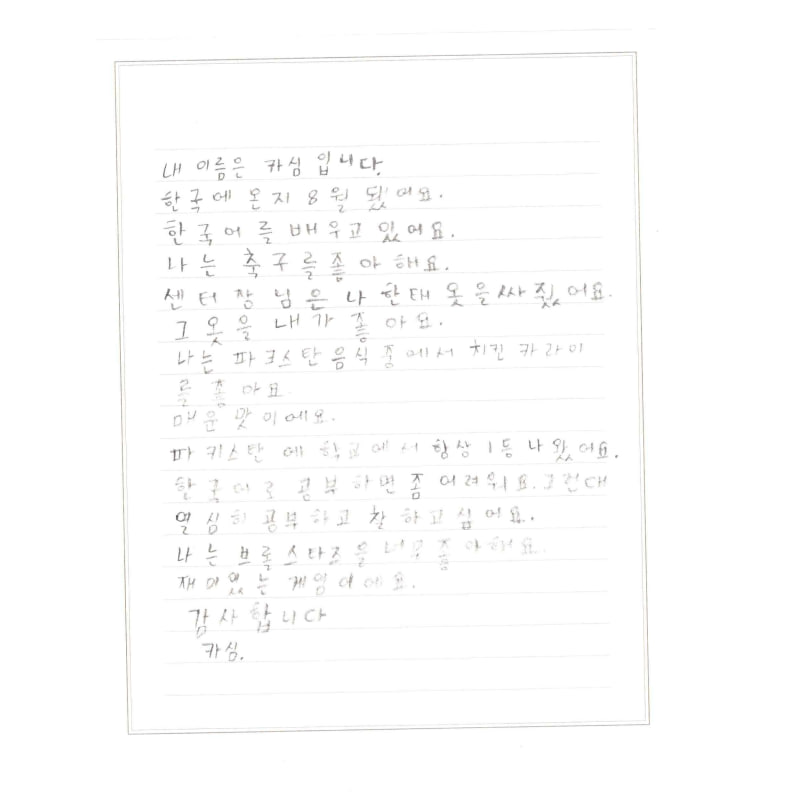 내 이름은 카심 입니다.
한국에 온지 8월 됬어요.
한국어를 배우고 있어요.
나는 축구를좋아해요.
센터장님은 나한태 옷을싸줬어요.
그 옷을 내가 좋아요.
나는 파키스탄음식중에서 치킨 카라이
를 좋아요
매운맛이에요.
파키스탄 에 학교에서 항상 1등 나왔어요.
한국어로 공부하면 좀 어려워요.그런대
열심히 공부하고 잘하고십어요.
나는 브롤스타즈을 너무 좋아해요.
재미있는 게임이에요.
감사합니다
카심.